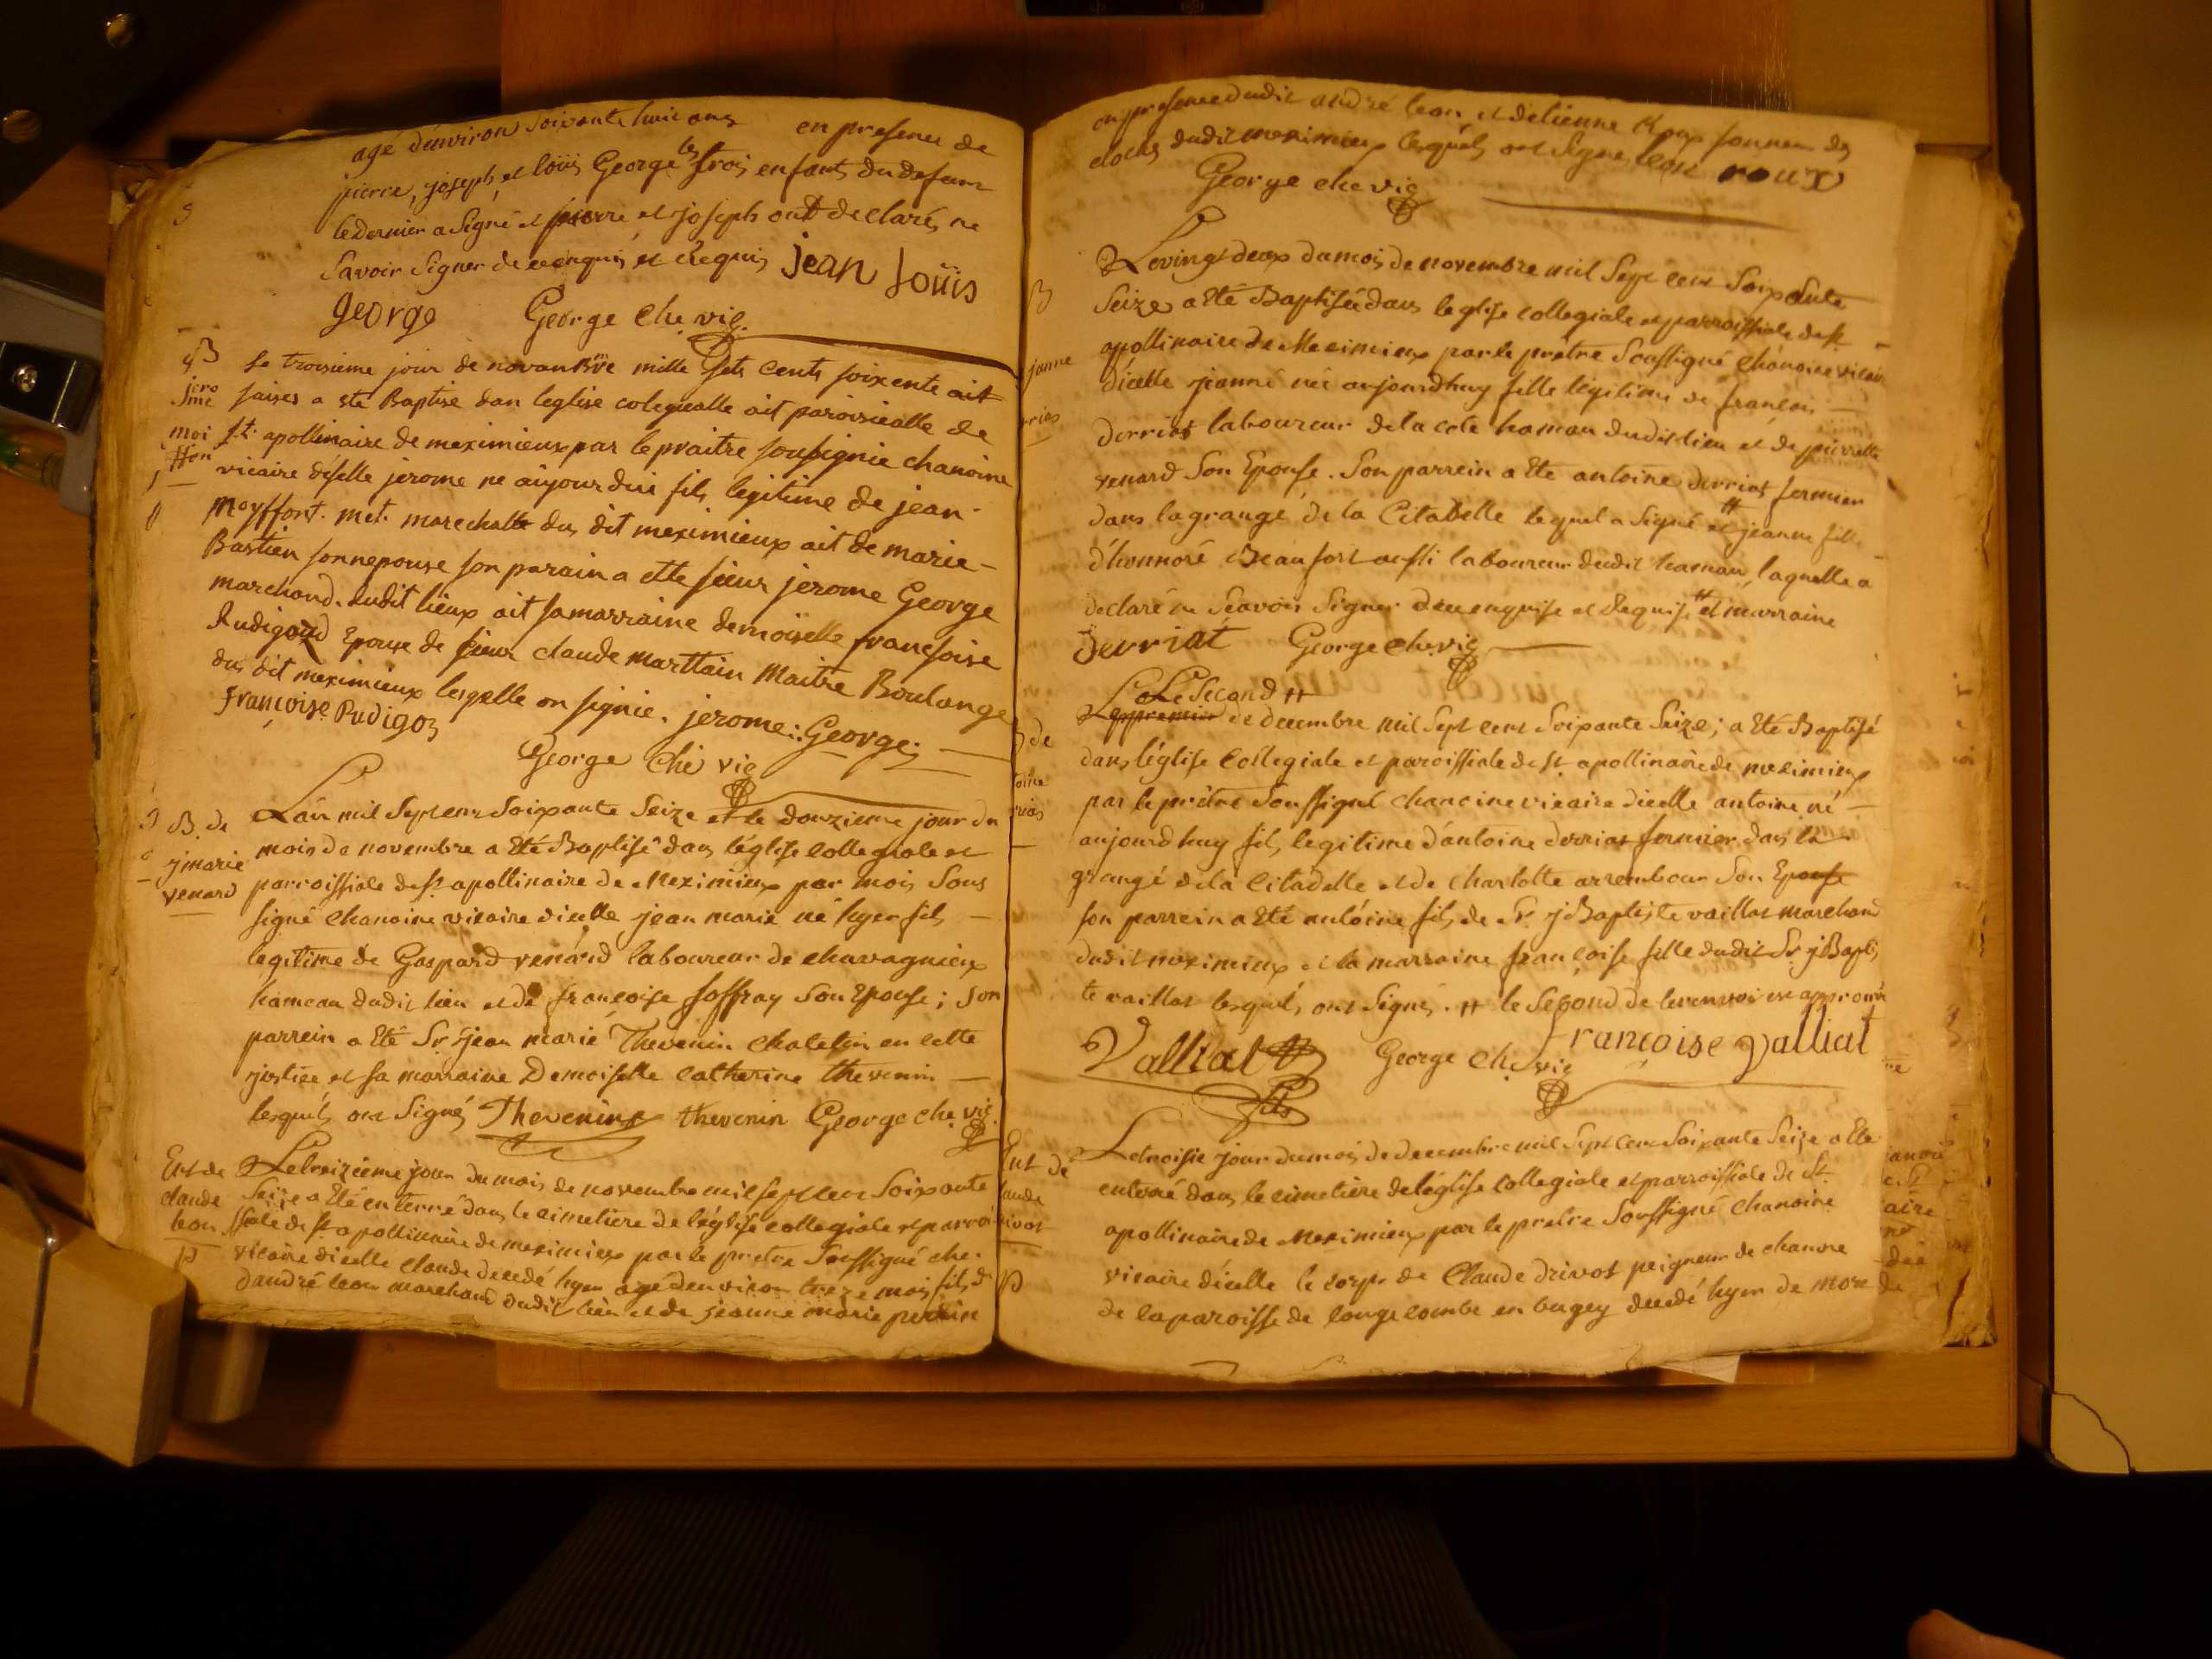 agé denviron soixante huit ans en presence de
pierre, joseph et loüis George les trois enfants du defunt
le dernier a signé et pierre et joseph ont declarés ne
savoir signer de ce enquis et requis jean loüis
george George che. vic.
B
jero
sme
moi
ffon
Le troisieme jour de novanbre mille sets cents soixente ait
saises a ete Baptise dan leglise colegealle ait paroisiealle de
st. apollinaire de meximieux par le praitre sousignie chanoine
vicaire diselle jerome ne aujourdui fils legitime de jean
moyffont. met. marechalle du dit meximieux ait de marie
Bastien sonnepouse son parain a ette sieur jerome George
marchand. dudit lieux ait sa marraine demoiselle francoise
Rudigoz Epouse de sieur claude marttain Maitre Boulange
du dit meximieux lesqelle on signie. jerome: George;
françoise Rudigoz
George Che vic
B. de
j marie
venard
L'an mil sept cent soixante seize et le douzieme jour du
mois de novembre a Eté Baptisé dans l'église collegiale et
parroissiale de st apollinaire de Meximieux par mois sous
signé chanoine vicaire dicelle jean marie né hyer fils
legitime de Gaspard venard laboureur de chavagnieux
hameau dudit lieu et de françoise joffray son Epouse; son
parrein a Eté Sr jean marie Thevenin chatelin en cette
justice et sa marraine Demoiselle catherine thevenin
lesquels ont signés Thevenin thevenin George che. vic.
Ent de
claude
leon
Le treizieme jour du mois de novembre mil sept cent soixante
seize a Eté enterré dans le cimetiere de l'église collegiale et parroi
ssiale de st apollinaire de meximieux par le pretre soussigné che.
vicaire dicelle claude decedé hyer agé denviron treze mois fils d
dandré leon marchand dudit lieu et de jeanne marie perrin
en presence dudit andré leon et detienne Roux sonneur des
cloches dudit meximieux lesquels ont signés leon roux
George che vic
B
janne
rrias
Le vingt deux du mois de novembre mil sept cent soixante
seize a Eté Baptisée dans leglise collegiale et parroissiale de st
apollinaire de Meximieux par le prêtre soussigné chanoine vicair
dicelle jeanne née aujourdhuy fille légitime de françois
derrias laboureur de la cote hamau dudit lieu et de pierrette
venard son Epouse. son parrein a Eté antoine derrias fermier
dans la grange de la Citadelle lequel a signé et jeanne fille
d'honnoré Beaufort aussi laboureur dudit hamau, laquelle a
declaré ne sçavoir signer de ce enquise et requise et marraine
Derriat George che. vic
B de
toine
rrias
Le Second
Le premier de decembre mil sept cent soixante seize; a Eté Baptisé
dans l'église collegiale et paroissiale de st apollinaire de meximieux
par le prêtre soussigné chanoine vicaire dicelle antoine né
aujourdhuy fils legitime d'antoine derrias fermier dans la
grange de la Citadelle et de charlotte arrembour son Epouse
son parrein a Eté antoine fils de Sr. j Baptiste vaillat marchand
dudit meximieux et la marraine françoise fille dudit Sr j Bapti
te vaillat lesquels ont signés. le second de le renvoi est approuvé
Valliat fils George che. vic françoise valliat
Ent de
laude
rivot
Le troisie jour du mois de decembre mil sept cent soixante seize a Eté
enterré dans le cimetiere de l'église collegiale et parroissiale de st
apollinaire de Meximieux par le pretre soussigné chanoine
vicaire dicelle le corps de Claude drivot peigneur de chanvre
de la paroisse de longecombe en bugey decedé hyer de mort de